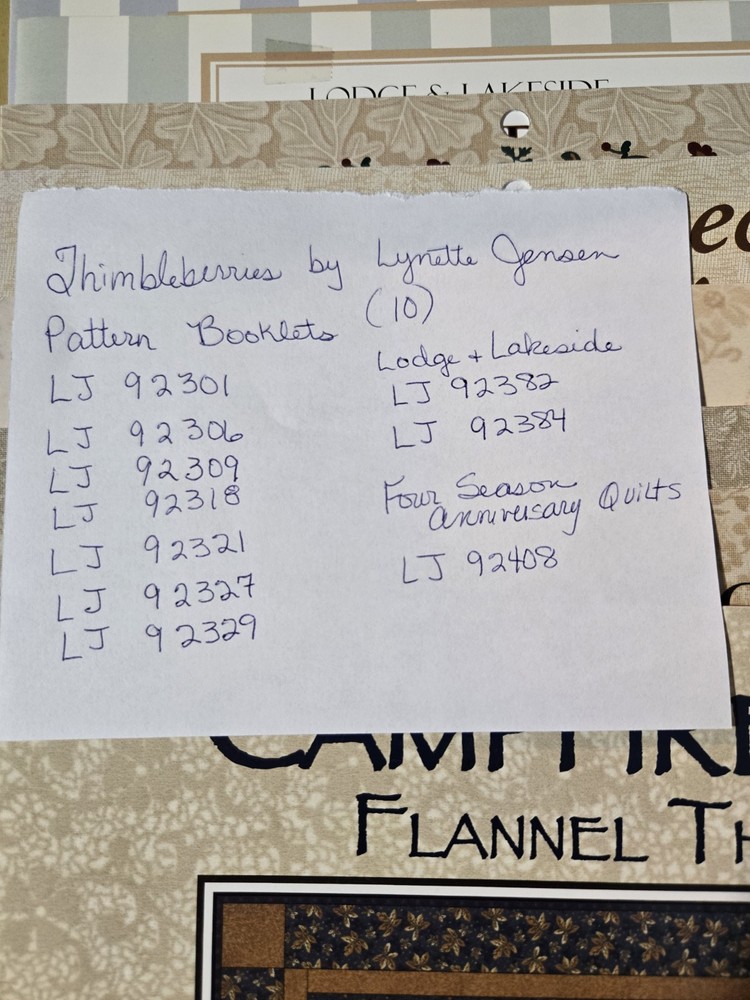 LODGE & LAKESIDE
Thimbleberries by Lynette Jensen
Pattern Booklets (10)
LJ 92301
LJ 92306
LJ 92309
LJ 92318
LJ 92321
LJ 92327
LJ 92329
Lodge + Lakeside
LJ 92382
LJ 92384
Four Season
Anniversary Quilts
LJ 92408
FLANNEL